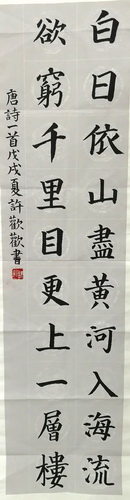 白日依山盡黃河入海流
欲窮千里目更上一層樓
唐詩一首戊戌夏許歡歡書